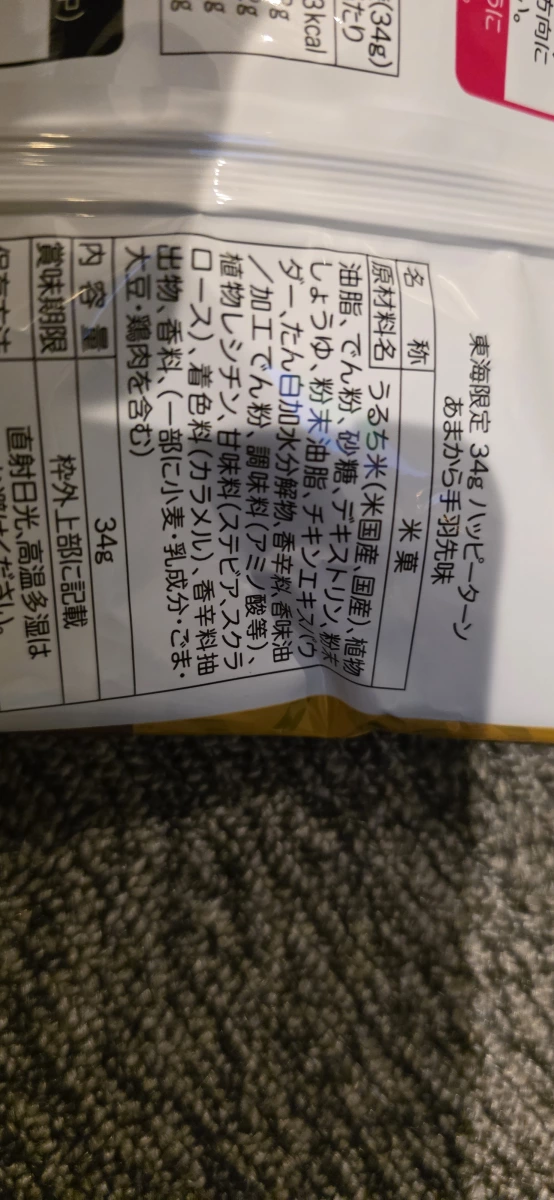 (34g)
たり
3kcal
g
g
g
g
方向に
い。
うに
東海限定 34g ハッピーターン
あまから手羽先味
名称 米菓
原材料名 うるち米(米国産、国産)、植物
油脂、でん粉、砂糖、デキストリン、粉末
しょうゆ、粉末油脂、チキンエキスパウ
ダー、たん白加水分解物、香辛料、香味油
/加工でん粉、調味料(アミノ酸等)、
植物レシチン、甘味料(ステビア、スクラ
ロース)、着色料(カラメル)、香辛料抽
出物、香料、(一部に小麦・乳成分・ごま・
大豆・鶏肉を含む)
内容量 34g
賞味期限 枠外上部に記載
保存方法 直射日光、高温多湿は
ください。